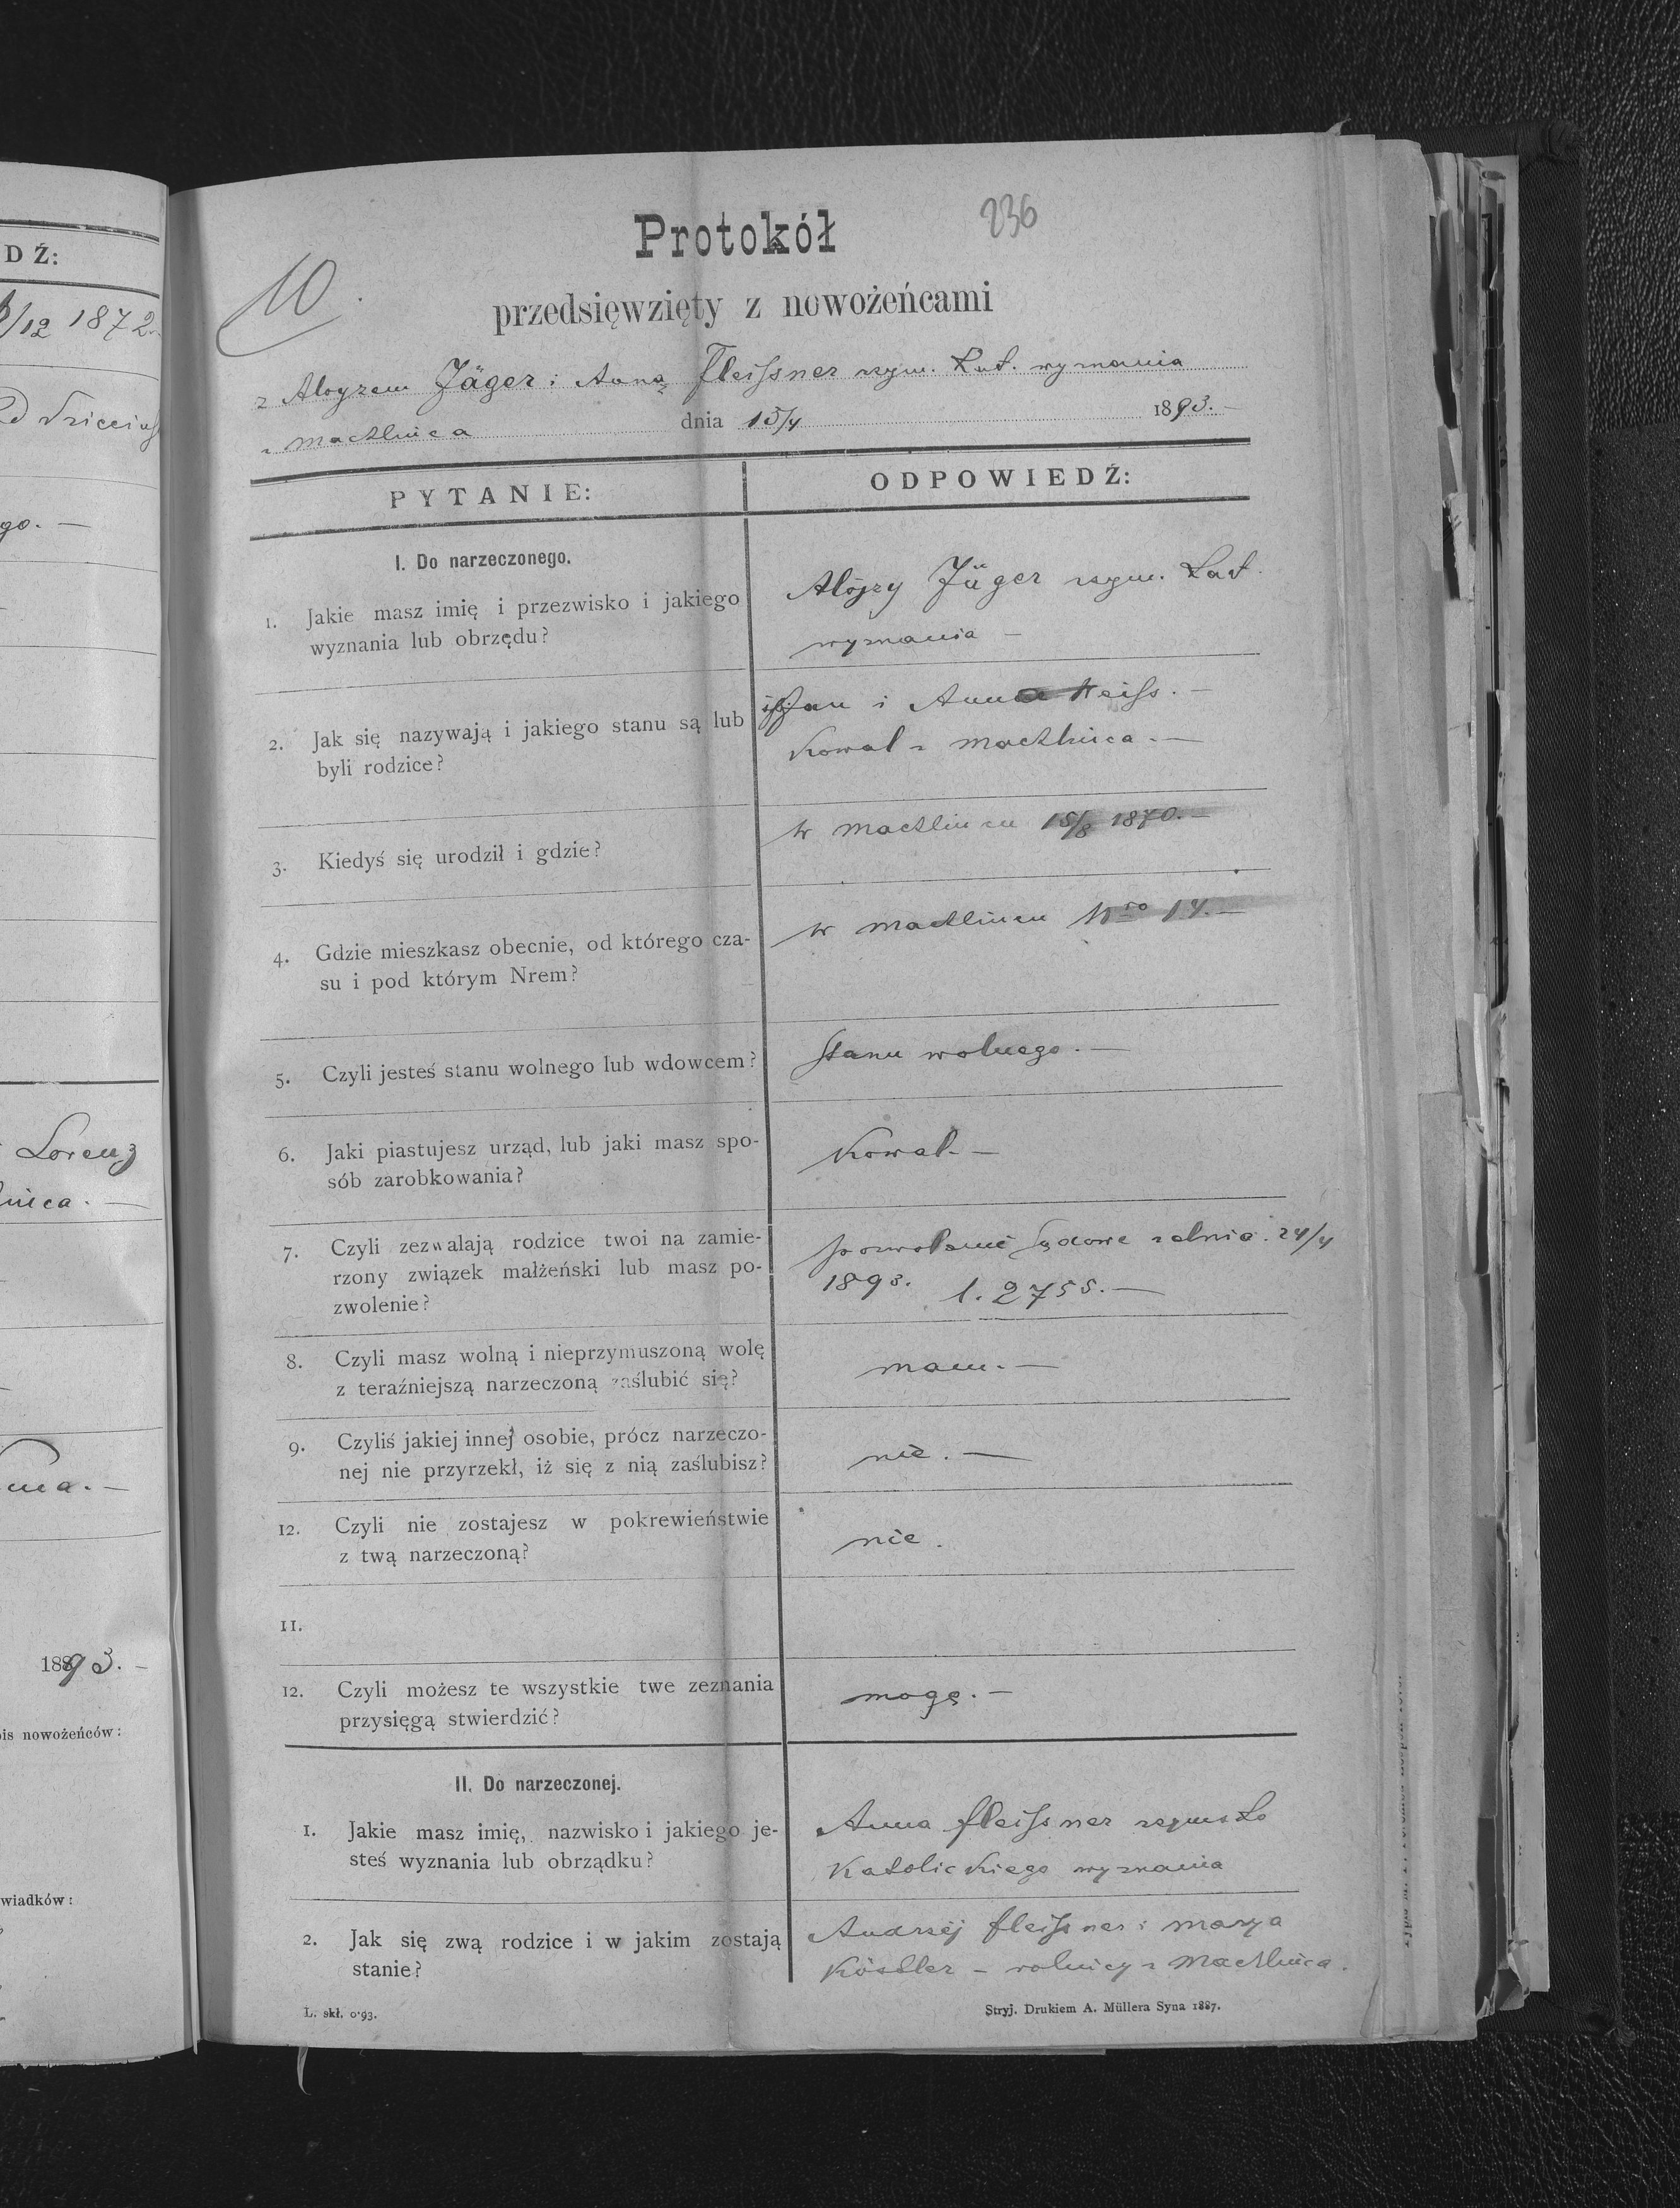 DŹ:
/12 1872
go. —
Lorenz
nica. —
1893. —
is nowożeńców:
wiadków:
236
10.
Protokół
przedsięwzięty z nowożeńcami
z Aloyzem Jäger i Anną Fleissner rzym. Kat. wyznania
z Machlinca dnia 15/4 1893. —
PYTANIE:
ODPOWIEDŹ:
I. Do narzeczonego.
1. Jakie masz imię i przezwisko i jakiego
wyznania lub obrzędu?
Alojzy Jäger rzym. Kat.
wyznania —
2. Jak się nazywają i jakiego stanu są lub
byli rodzice?
Jan i Anna Weiss. —
Kowal z Machlinca. —
3. Kiedyś się urodził i gdzie?
w Machlincu 15/8 1870. —
4. Gdzie mieszkasz obecnie, od którego cza-
su i pod którym Nrem?
w Machlincu Nro 14. —
5. Czyli jesteś stanu wolnego lub wdowcem?
Stanu wolnego. —
6. Jaki piastujesz urząd, lub jaki masz spo-
sób zarobkowania?
Kowal. —
7. Czyli zezwalają rodzice twoi na zamie-
rzony związek małżeński lub masz po-
zwolenie?
pozwolenie sądowe z dnia 24/4
1893. l. 2755. —
8. Czyli masz wolną i nieprzymuszoną wolę
z teraźniejszą narzeczoną zaślubić się?
mam. —
9. Czyliś jakiej innej osobie, prócz narzeczo-
nej nie przyrzekł, iż się z nią zaślubisz?
nie. —
12. Czyli nie zostajesz w pokrewieństwie
z twą narzeczoną?
nie.
11.
12. Czyli możesz te wszystkie twe zeznania
przysięgą stwierdzić?
mogę. —
II. Do narzeczonej.
1. Jakie masz imię, nazwisko i jakiego je-
steś wyznania lub obrządku?
Anna Fleissner rzymsko
Katolickiego wyznania
2. Jak się zwą rodzice i w jakim zostają
stanie?
Andrzej Fleissner i Marya
Kössler — rolnicy z Machlinca.
L. skł. 0·93.
Stryj. Drukiem A. Müllera Syna 1887.